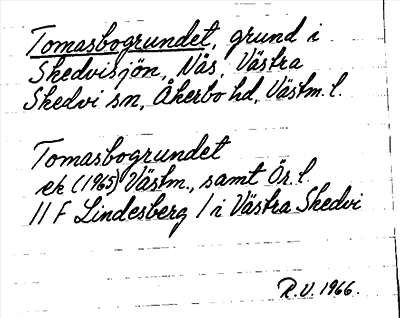 Tomasbogrundet, grund i
Skedvisjön, Nås, Västra
Skedvi sn, Åkerbo hd, Västm. l.
Tomasbogrundet
ek (1965) Västm., samt Ös. l.
11 F Lindesberg / i Västra Skedvi
R.V. 1966.